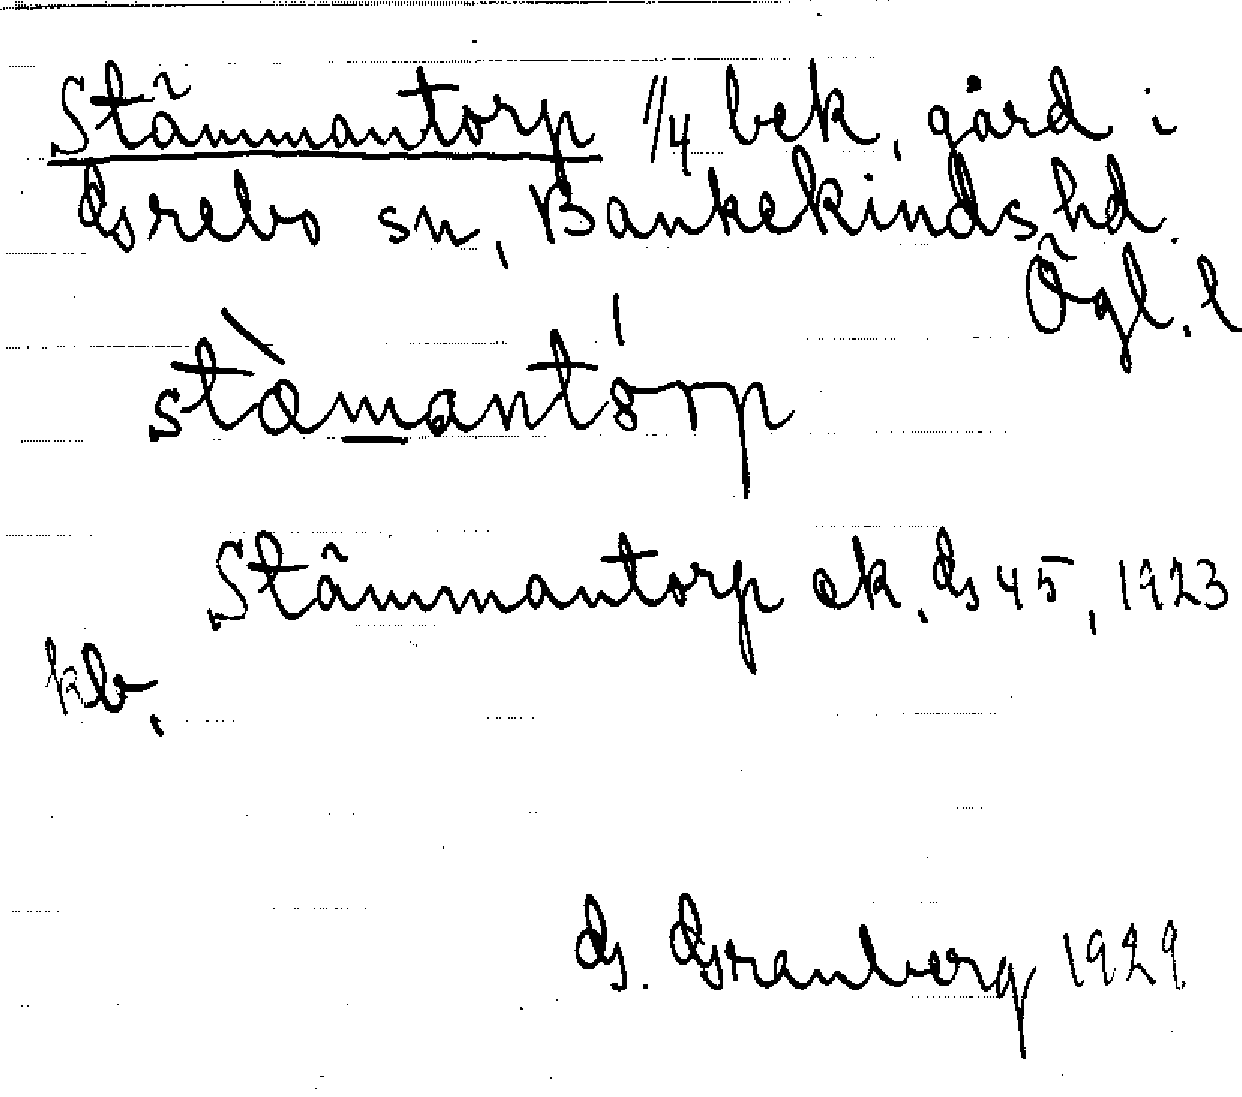 Stämmantorp 1/4 bek. gård i
Grebo sn, Bankekinds hd.
Ögl. l
stàmantórp
Stämmantorp ek. G 45, 1923
kb.
G. Granberg 1929